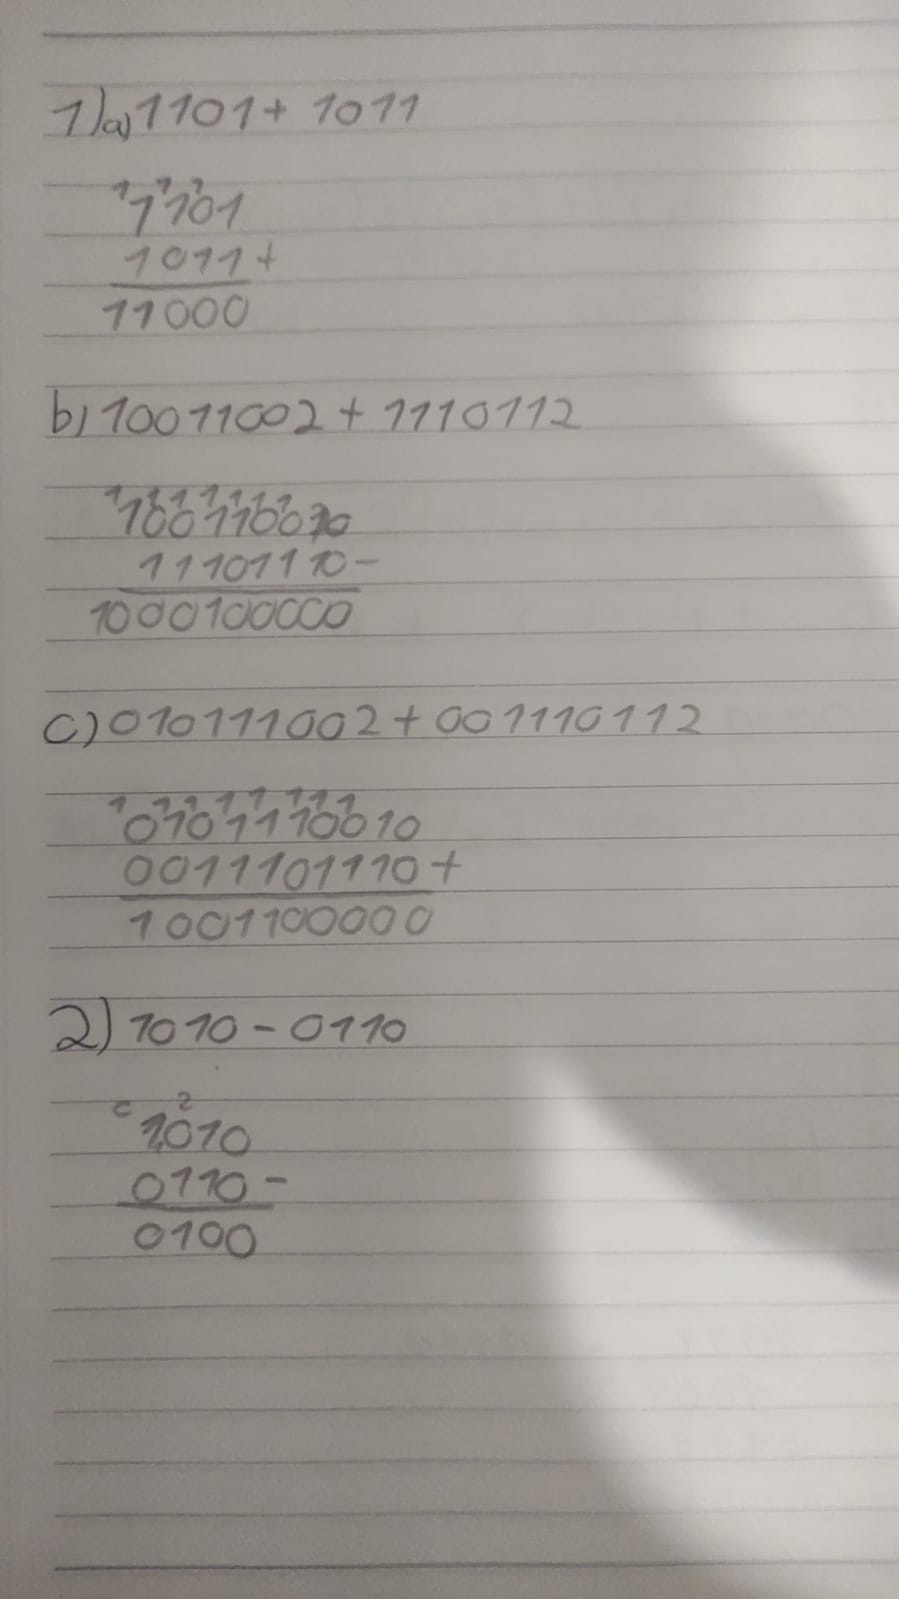 1)a)1101+ 1011
1 1 1
1101
1011+
11000
b) 10011002 + 1110112
1001100
11101110-
1000100000
c) 010111002 + 001110112
0101110010
0011101110+
1001100000
2) 1010 - 0110
2
1010
0110-
0100